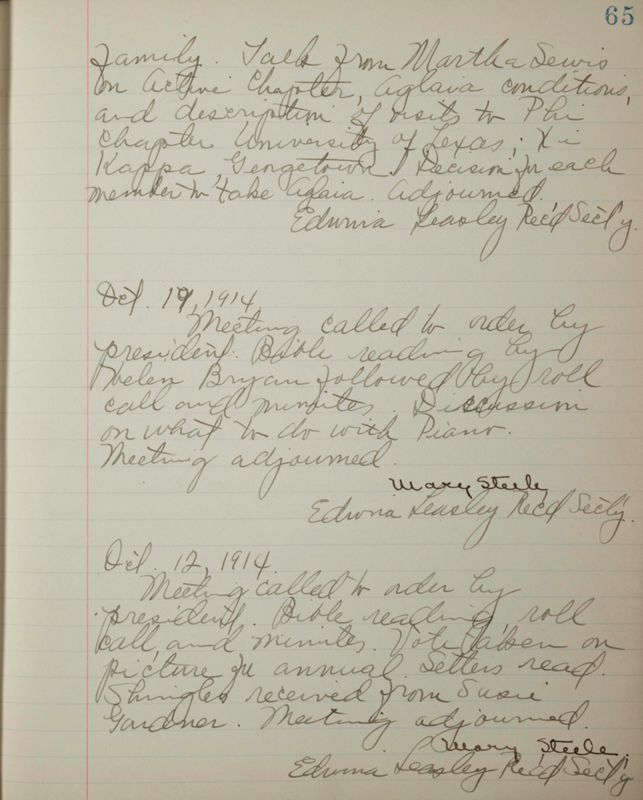 65
Family. Talk from Martha Lewis
on Active Chapter, Aglaia conditions,
and description of visits to Phi
Chapter University of Texas; Xi
Kappa, Georgetown. Decision for each
member to take Aglaia. Adjourned.
Edwina Leasley Rec'd Sect'y.
Oct. 19, 1914
Meeting called to order by
president. Bible reading by
Helen Bryan followed by roll
call and minutes. Discussion
on what to do with Piano.
Meeting adjourned.
Mary Steele
Edwina Leasley Rec'd Sect'y.
Oct. 12, 1914.
Meeting called to order by
president. Bible reading, roll
call, and minutes. Vote taken on
picture for annual. Letters read.
Shingles received from Susie
Gardner. Meeting adjourned.
Mary Steele
Edwina Leasley Rec'd Sect'y